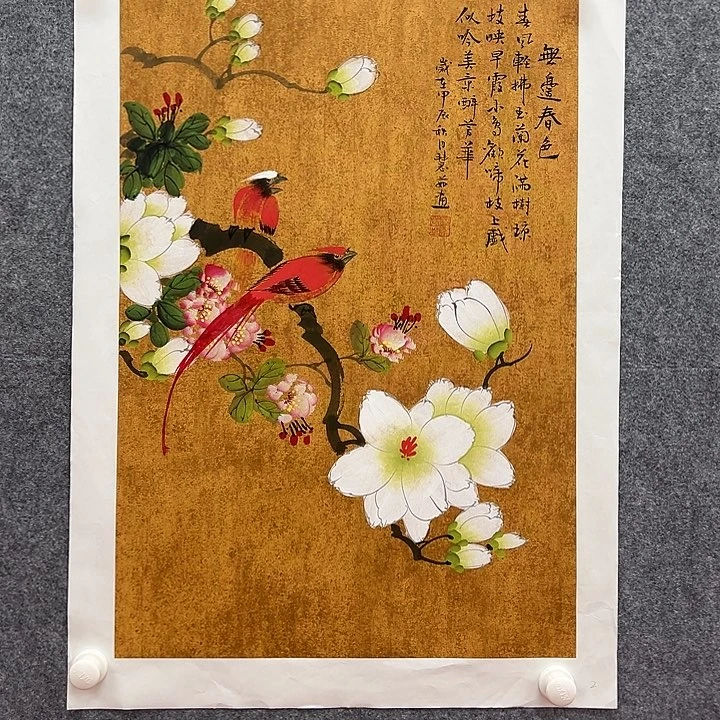 無邊春色
春風輕拂玉蘭花滿樹瓊
枝映早霞小鳥歡啼枝上戲
似吟美京醉芳華
歲在甲辰秋月